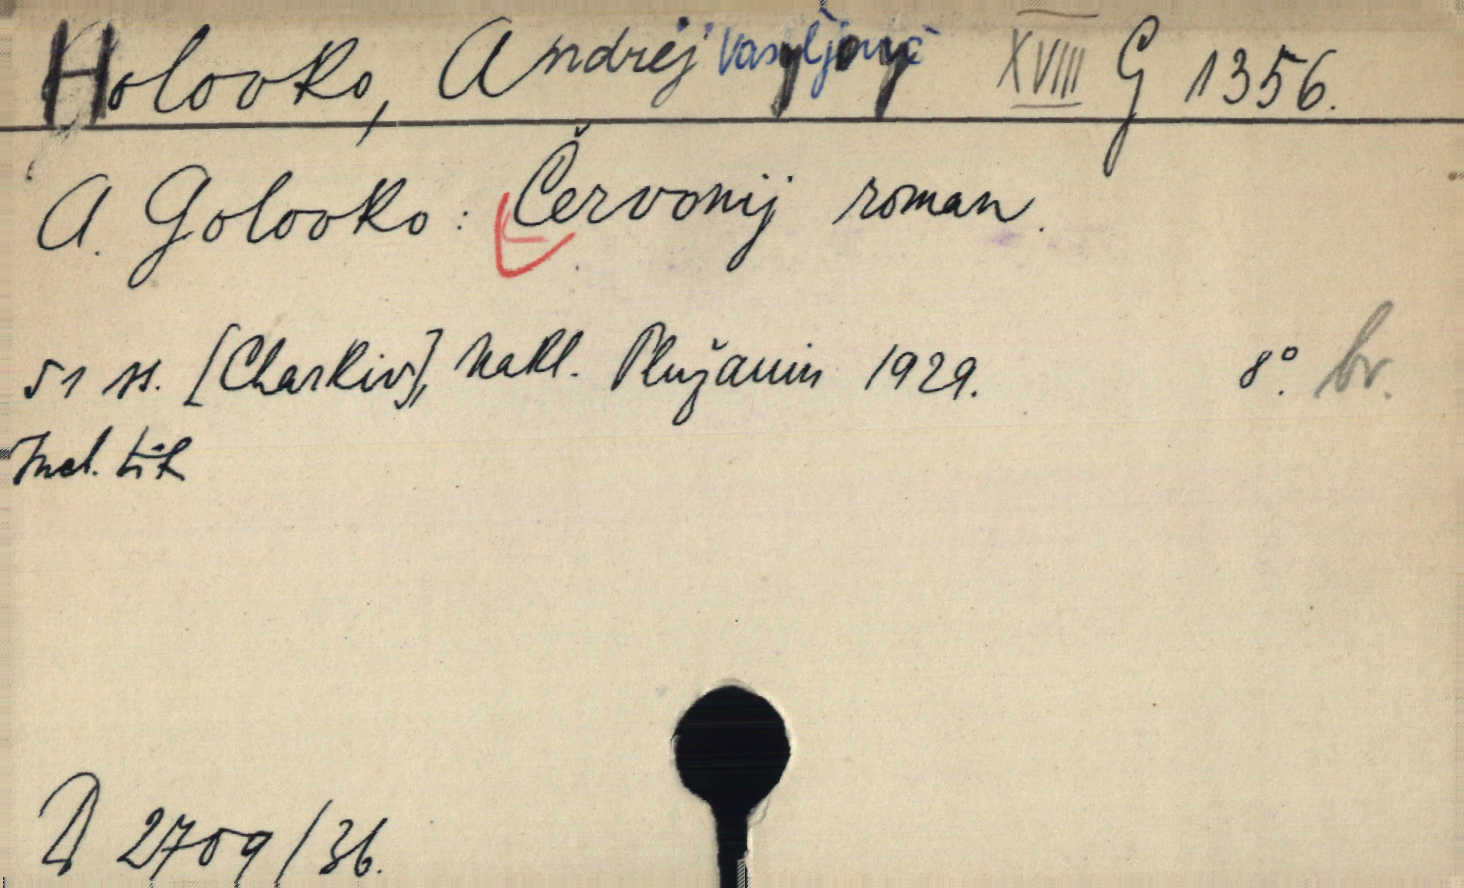 Holovko, Andrej Vasyljovyč XVIII G 1356.
A. Golovko: Červonij roman.
51 ss. [Charkiv], Nakl. Plužanin 1929. 8°. br.
D 2709/36.